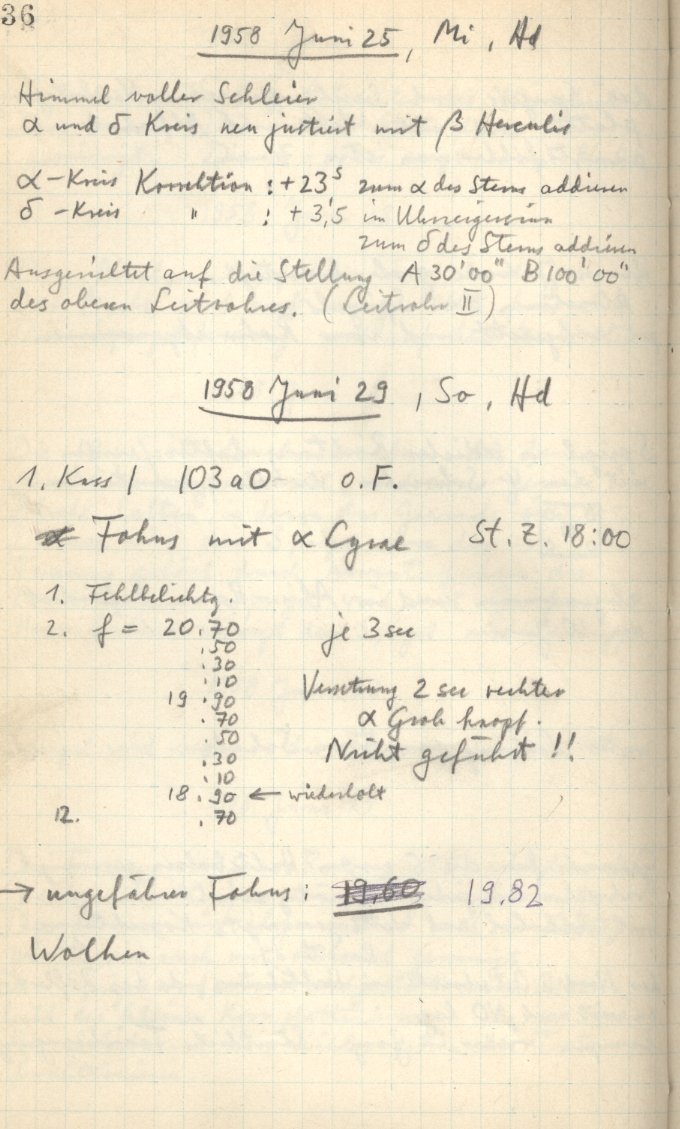 36
1958 Juni 25, Mi, Hd
Himmel voller Schleier
α und δ Kreis neu justiert mit β Herculis
α-Kreis Korrektion : +23ˢ zum α des Sterns addieren
δ-Kreis " : +3,'5 im Uhrzeigersinn
zum δ des Sterns addieren
Ausgerichtet auf die Stellung A 30'00" B 100'00"
des oberen Leitrohres. (Leitrohr II)
1958 Juni 29, So, Hd
1. Kass 1 103aO o.F.
Fokus mit α Cygni St. Z. 18:00
1. Fehlbelichtg.
2. f = 20.70 je 3 sec
.50
.30
.10
19.90 Versetzung 2 sec rechter
.70 α Grob knopf.
.50 Nicht geführt !!
.30
.10
18.90 ← wiederholt
12. .70
→ ungefährer Fokus: 19,60 19,82
Wolken